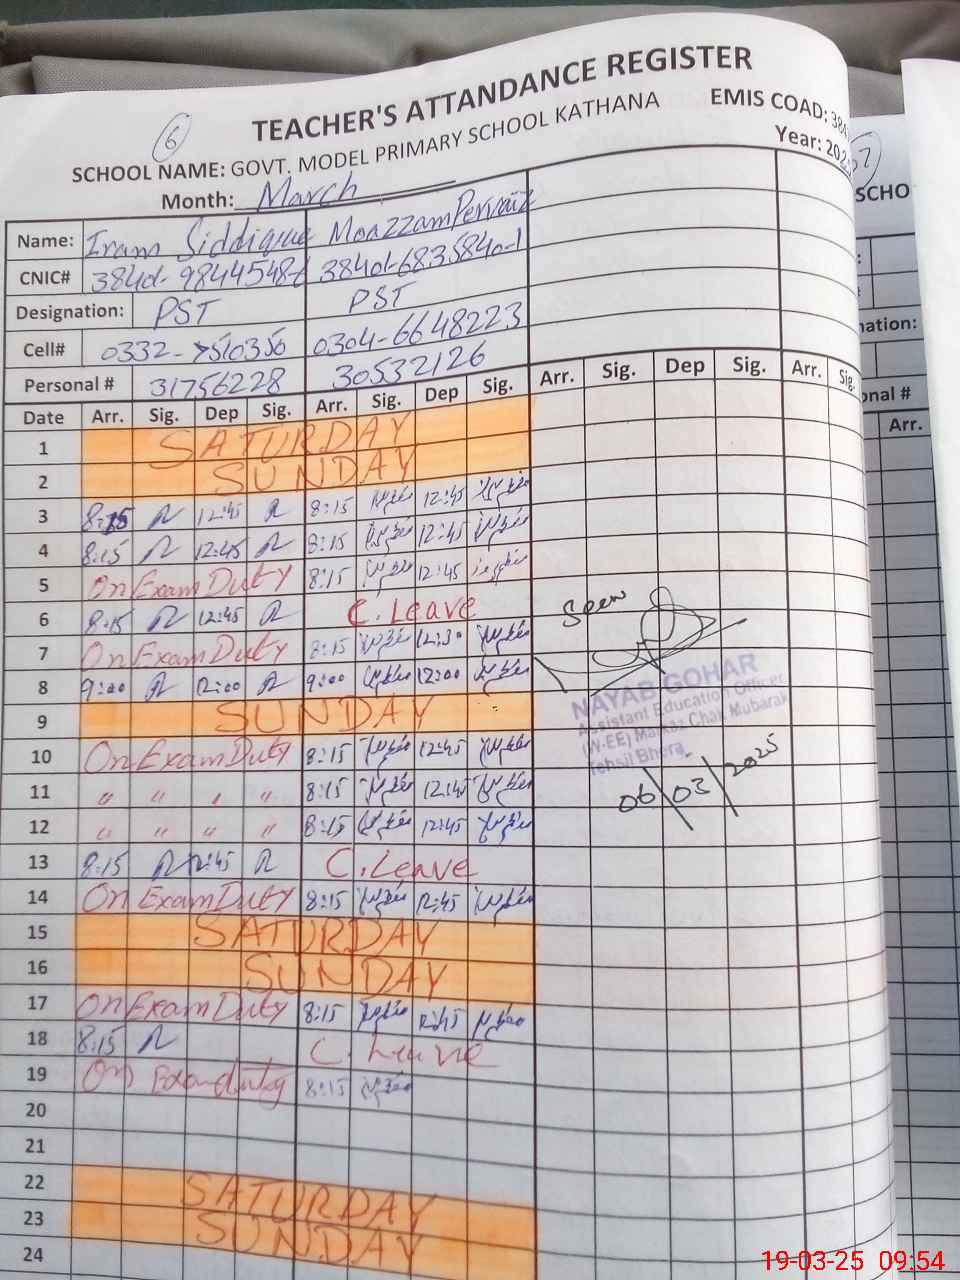 6
TEACHER'S ATTANDANCE REGISTER
SCHOOL NAME: GOVT. MODEL PRIMARY SCHOOL KATHANA EMIS COAD: 384
Month: March Year: 202
Name: Iram Siddique Moazzam Pervaiz
CNIC# 38401-6835840-1
Designation: PST PST
Cell# 0332-7510350 0304-6648223
Personal # 31756228 30532126
Date Arr. Sig. Dep Sig. Arr. Sig. Dep Sig. Arr. Sig. Dep Sig. Arr. Sig.
1 SATURDAY
2 SUNDAY
3 8:15 12:45 8:15 12:45
4 8:15 12:45 8:15 12:45
5 On Exam Duty 8:15 12:45
6 8:15 12:45 C. Leave
7 On Exam Duty 8:15 12:30
8 9:00 12:00 9:00 12:00
9 SUNDAY
10 On Exam Duty 8:15 12:45
11 " " " " 8:15 12:45
12 " " " " 8:15 12:45
13 8:15 12:45 C. Leave
14 On Exam Duty 8:15 12:45
15 SATURDAY
16 SUNDAY
17 On Exam Duty 8:15 12:45
18 8:15 C. Leave
19 On Exam duty 8:15
20
21
22 SATURDAY
23 SUNDAY
24
Seen
NAYAB GOHAR
Assistant Education Officer
(W-EE) Markaz Chak Mubarak
Tehsil Bhera
06/03/2025
SCHO
nation:
onal #
Arr.
19-03-25 09:54